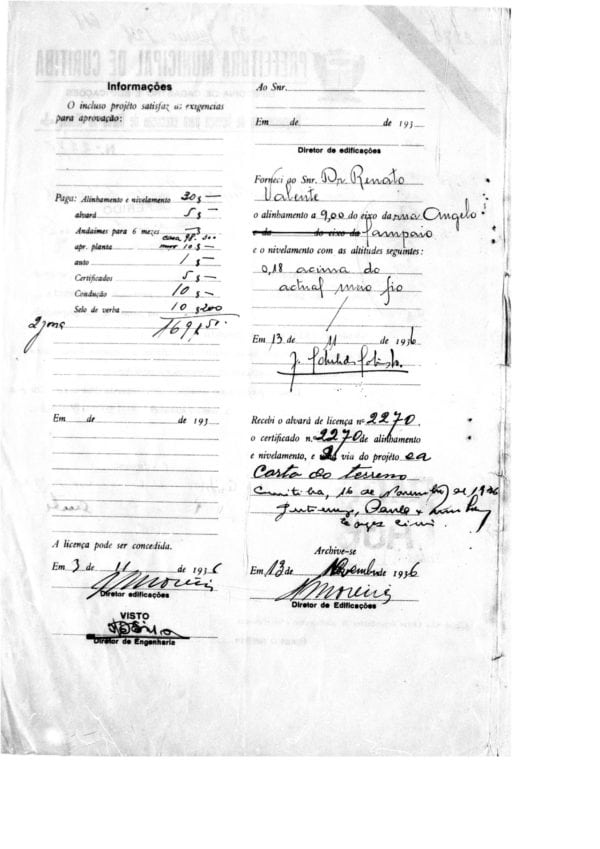 Informações
O incluso projéto satisfaz as exigencias
para aprovação:
Paga: Alinhamento e nivelamento 30$—
alvará 5$—
Andaimes para 6 mezes —$
casa 98.
apr. planta 10$—
auto 1$—
Certificados 5$—
Condução 10$—
Selo de verba 10$200
Em de de 193
A licença pode ser concedida.
Em 3 de 11 de 1936
J Moreira
Diretor edificações
VISTO
Diretor de Engenharia
Ao Snr.
Em de de 193
Diretor de edificações
Forneci ao Snr. Dr Renato
Valente
o alinhamento a 9,00 do eixo da rua Angelo
e da do eixo da Sampaio
e o nivelamento com as altitudes seguintes:
0,18 acima do
actual meio fio
Em 13 de 11 de 1936
Recebi o alvará de licença nº 2270
o certificado n. 2270 de alinhamento
e nivelamento, e via do projéto e a
Carta do terreno
Curitiba, 16 de Novembro de 1936
Gutierrez, Paula &
Archive-se
Em 13 de Novembro de 1936
J Moreira
Diretor de Edificações
PREFEITURA MUNICIPAL DE CURITIBA